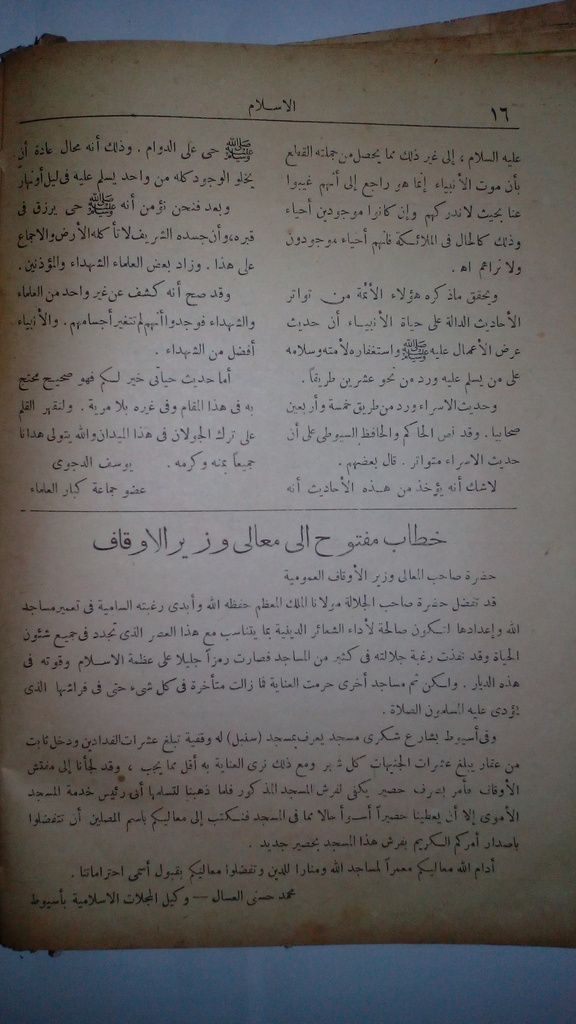 ١٦
الاسلام
عليه السلام ، إلى غير ذلك مما يحصل من جملته القطع
بأن موت الأنبياء إنما هو راجع إلى أنهم غيبوا
عنا بحيث لا ندركهم وإن كانوا موجودين أحياء
وذلك كالحال فى الملائكة فانهم أحياء موجودون
ولا نراهم اه .
ويحقق ما ذكره هؤلاء الأئمة من تواتر
الأحاديث الدالة على حياة الأنبياء أن حديث
عرض الأعمال عليه ﷺ واستغفاره لأمته وسلامه
على من يسلم عليه ورد من نحو عشرين طريقا .
وحديث الاسراء ورد من طريق خمسة وأربعين
صحابيا . وقد نص الحاكم والحافظ السيوطى على أن
حديث الاسراء متواتر . قال بعضهم .
لاشك أنه يؤخذ من هذه الأحاديث أنه
ﷺ حى على الدوام . وذلك أنه محال عادة أن
يخلو الوجود كله من واحد يسلم عليه فى ليل أو نهار
وبعد فنحن نؤمن أنه ﷺ حى يرزق فى
قبره، وأن جسده الشريف لا تأكله الأرض والاجماع
على هذا . وزاد بعض العلماء الشهداء والمؤذنين .
وقد صح أنه كشف عن غير واحد من العلماء
والشهداء فوجدوا أنهم لم تتغير أجسامهم . والأنبياء
أفضل من الشهداء .
أما حديث حياتى خير لكم فهو صحيح محتج
به فى هذا المقام وفى غيره بلا مرية . ولنقهر القلم
على ترك الجولان فى هذا الميدان والله يتولى هدانا
جميعاً بمنه وكرمه . يوسف الدجوى
عضو جماعة كبار العلماء
خطاب مفتوح الى معالى وزير الاوقاف
حضرة صاحب المعالى وزير الأوقاف العمومية
قد تفضل حضرة صاحب الجلالة مولانا الملك المعظم حفظه الله وأبدى رغبته السامية فى تعمير مساجد
الله وإعدادها لتكون صالحة لأداء الشعائر الدينية بما يتناسب مع هذا العصر الذى تجدد فى جميع شئون
الحياة وقد نفذت رغبة جلالته فى كثير من المساجد فصارت رمزاً جليلا على عظمة الاسلام وقوته فى
هذه الديار . ولكن ثم مساجد أخرى حرمت العناية فما زالت متأخرة فى كل شىء حتى فى فراشها الذى
يؤدى عليه المسلمون الصلاة .
وفى أسيوط بشارع شكرى مسجد يعرف بمسجد (سنبل) له وقفية تبلغ عشرات الفدادين ودخل ثابت
من عقار يبلغ عشرات الجنيهات كل شهر ومع ذلك نرى العناية به أقل مما يجب ، وقد لجأنا إلى مفتش
الأوقاف فأمر بصرف حصير يكفى لفرش المسجد المذكور فلما ذهبنا لتسلمها أبى رئيس خدمة المسجد
الأموى إلا أن يعطينا حصيراً أسوأ حالا مما فى المسجد فنكتب إلى معاليكم باسم المصلين أن تتفضلوا
باصدار أمركم الكريم بفرش هذا المسجد بحصير جديد .
أدام الله معاليكم معمراً لمساجد الله ومنارا للدين وتفضلوا معاليكم بقبول أسمى احتراماتنا .
محمد حسنى العسال — وكيل المجلات الاسلامية بأسيوط